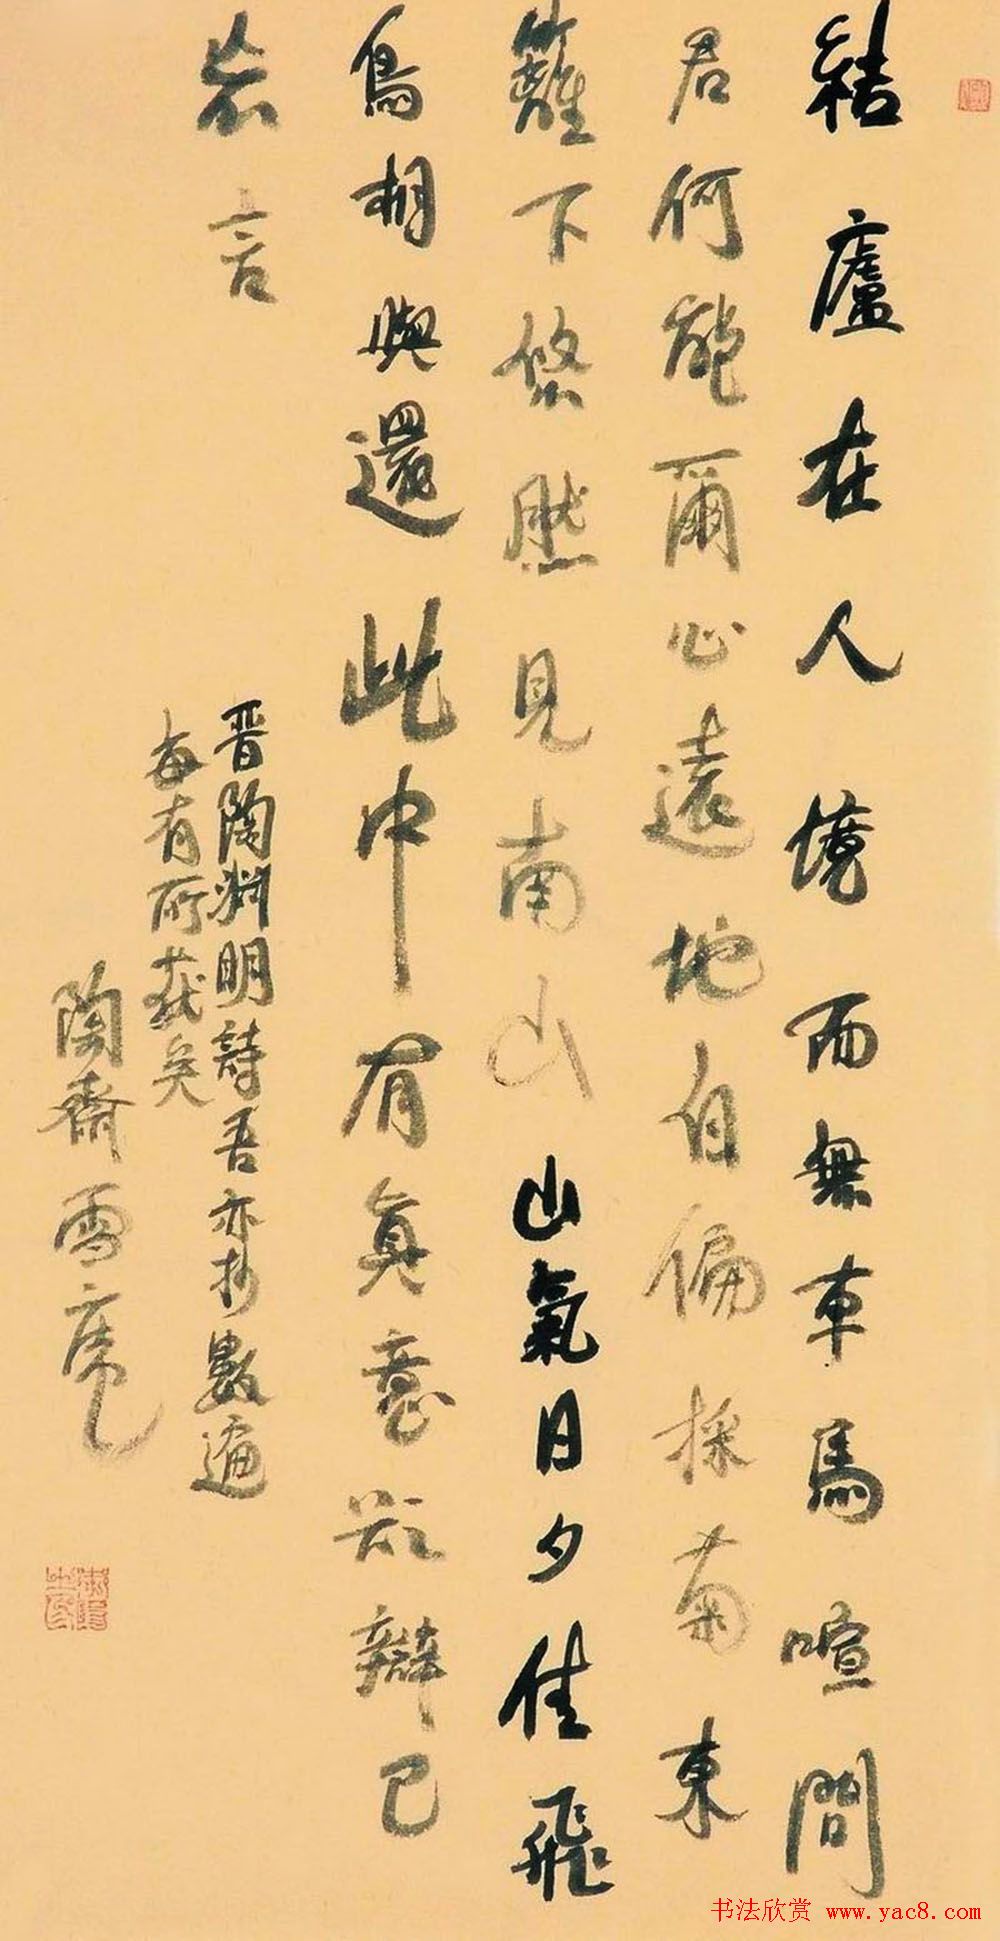 結廬在人境而無車馬喧問
君何能爾心遠地自偏採菊東
籬下悠然見南山山氣日夕佳飛
鳥相與還此中有真意欲辯已
忘言
晋陶淵明詩吾亦抄數遍
每有所获矣
陶齋雪
书法欣赏 www.yac8.com